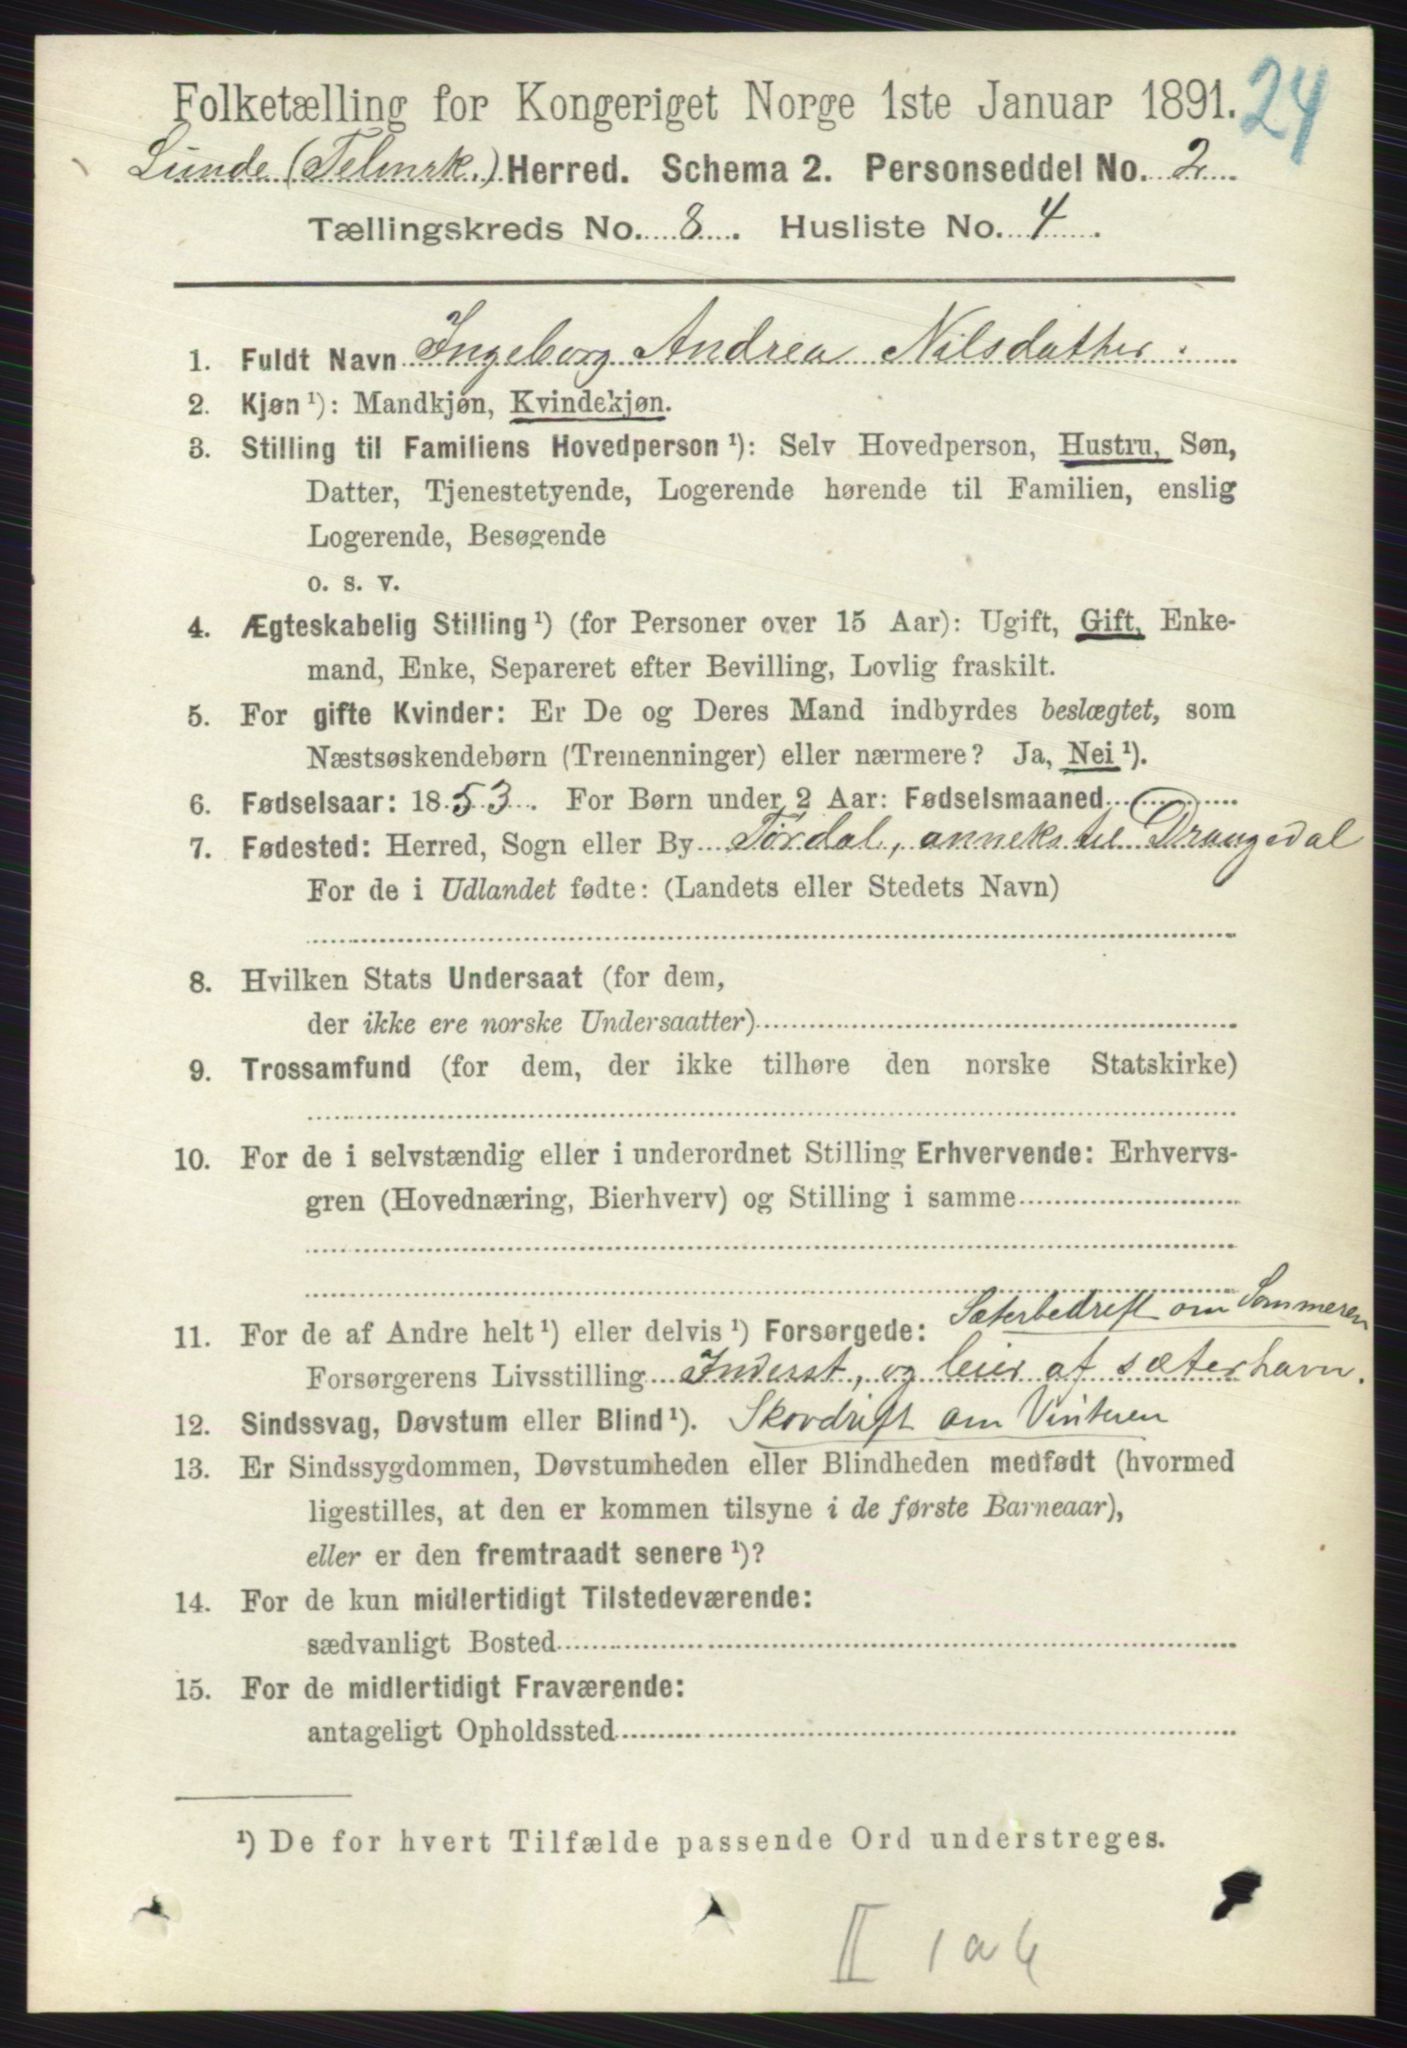 Folketælling for Kongeriget Norge 1ste Januar 1891. 24
Lunde (Telmrk.) Herred. Schema 2. Personseddel No. 2
Tællingskreds No. 8. Husliste No. 4.
1. Fuldt Navn Ingeborg Andrea Nilsdatter.
2. Kjøn ¹): Mandkjøn, Kvindekjøn.
3. Stilling til Familiens Hovedperson ¹): Selv Hovedperson, Hustru, Søn,
Datter, Tjenestetyende, Logerende hørende til Familien, enslig
Logerende, Besøgende
o. s. v.
4. Ægteskabelig Stilling ¹) (for Personer over 15 Aar): Ugift, Gift, Enke-
mand, Enke, Separeret efter Bevilling, Lovlig fraskilt.
5. For gifte Kvinder: Er De og Deres Mand indbyrdes beslægtet, som
Næstsøskendebørn (Tremenninger) eller nærmere? Ja, Nei ¹).
6. Fødselsaar: 1853. For Børn under 2 Aar: Fødselsmaaned
7. Fødested: Herred, Sogn eller By Tørdal, anneks til Drangedal
For de i Udlandet fødte: (Landets eller Stedets Navn)
8. Hvilken Stats Undersaat (for dem,
der ikke ere norske Undersaatter)
9. Trossamfund (for dem, der ikke tilhøre den norske Statskirke)
10. For de i selvstændig eller i underordnet Stilling Erhvervende: Erhvervs-
gren (Hovednæring, Bierhverv) og Stilling i samme
Sæterbedrift om Sommeren
11. For de af Andre helt ¹) eller delvis ¹) Forsørgede:
Forsørgerens Livsstilling Inderst, og leier af sæterhavn.
12. Sindssvag, Døvstum eller Blind ¹). Skovdrift om Vinteren
13. Er Sindssygdommen, Døvstumheden eller Blindheden medfødt (hvormed
ligestilles, at den er kommen tilsyne i de første Barneaar),
eller er den fremtraadt senere ¹)?
14. For de kun midlertidigt Tilstedeværende:
sædvanligt Bosted
15. For de midlertidigt Fraværende:
antageligt Opholdssted
¹) De for hvert Tilfælde passende Ord understreges.
II 1 a 6